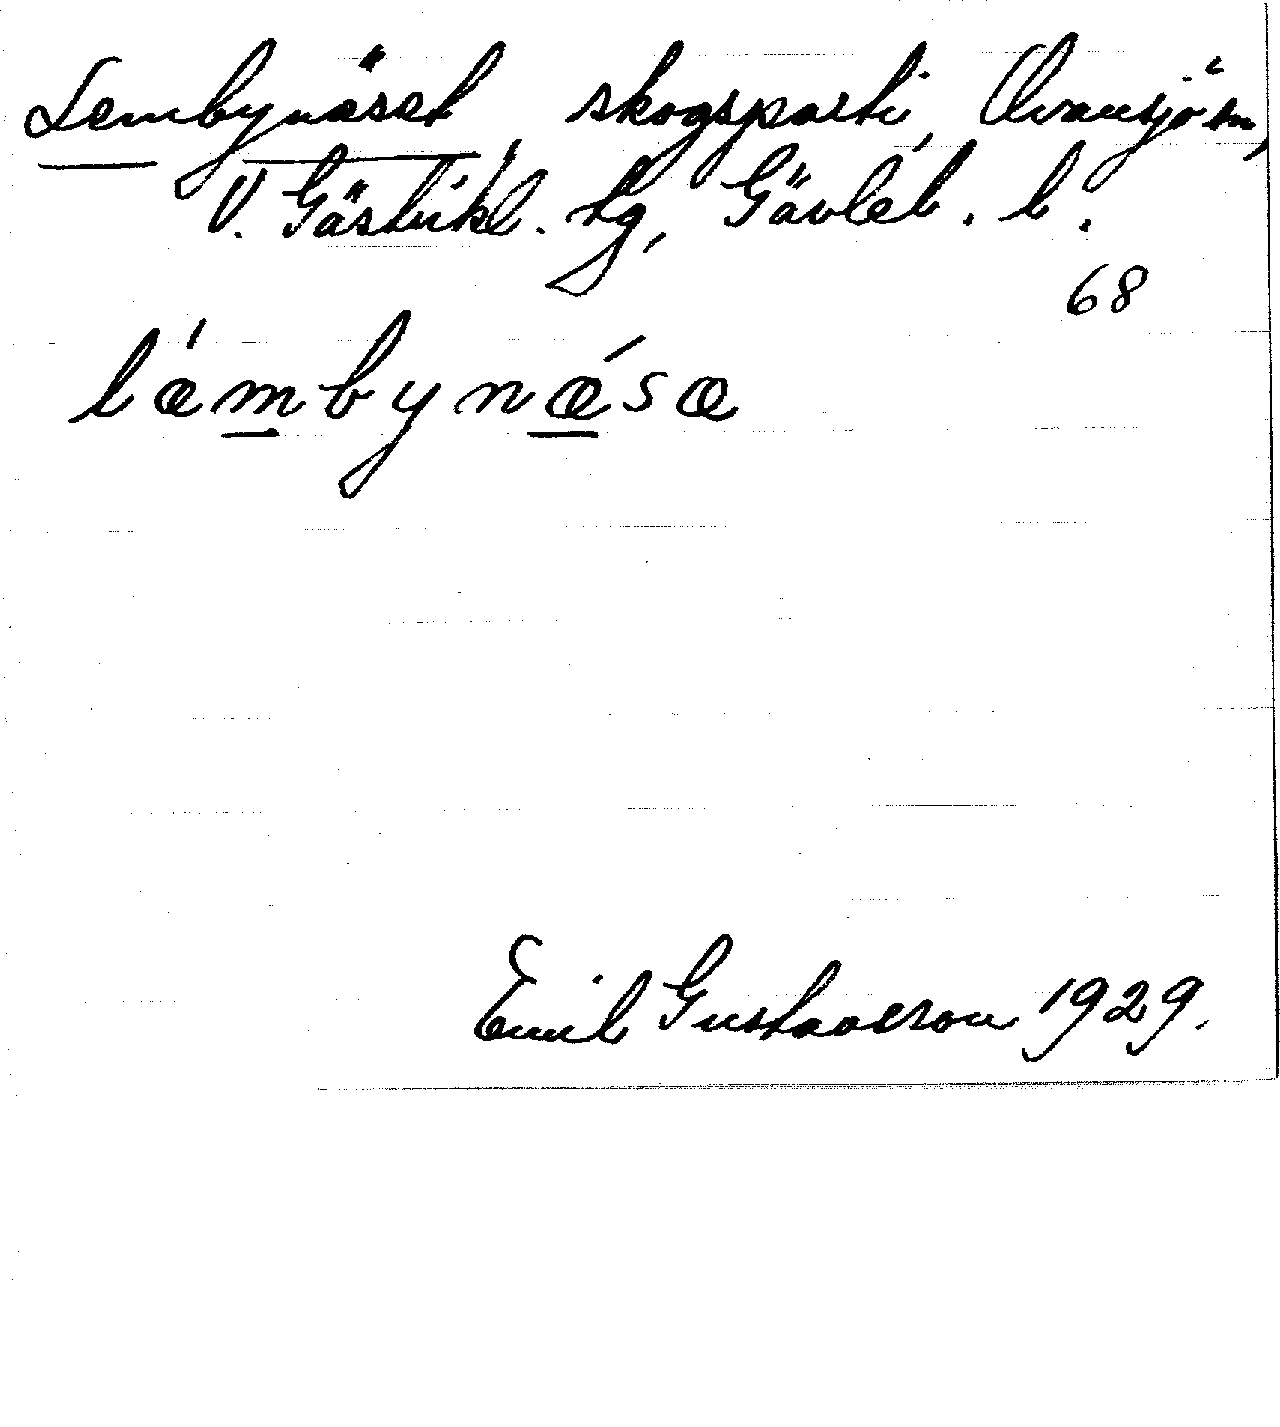 Lembynäset, skogsparti, Ovansjö sn,
V. Gästrikl. tg, Gävleb. l.
68
læ̀mbynǽsæ
Emil Gustavsson 1929.